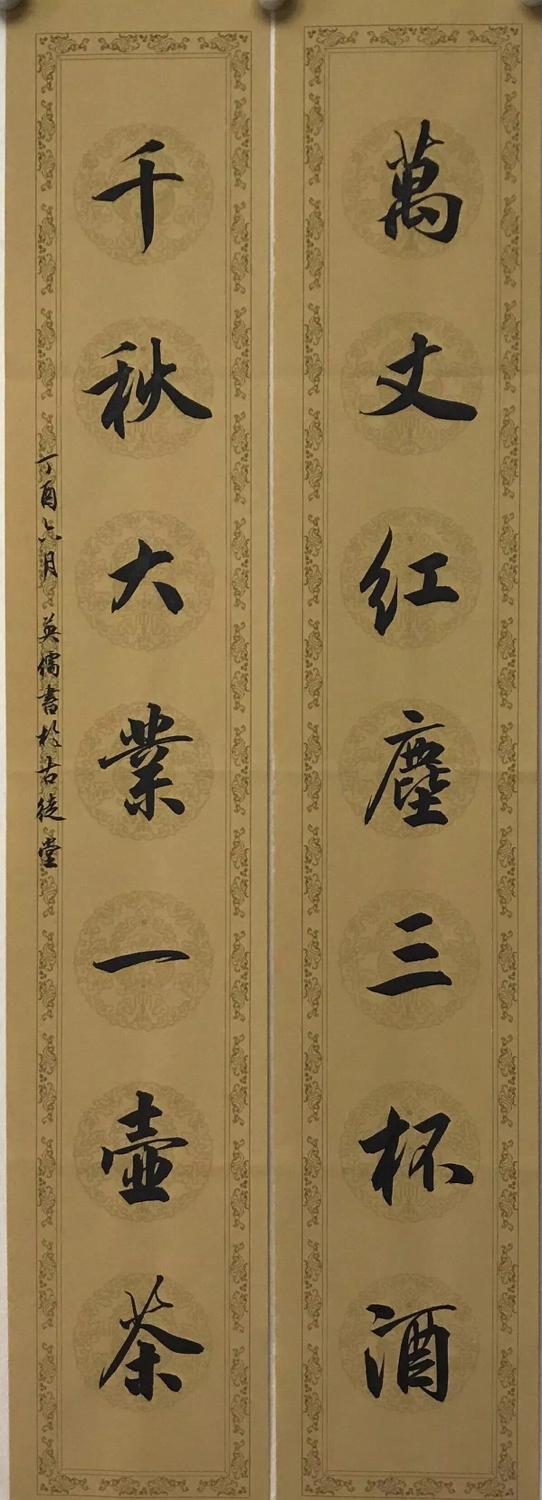 萬丈紅塵三杯酒
千秋大業一壺茶
丁酉六月 英儒書於古徒堂